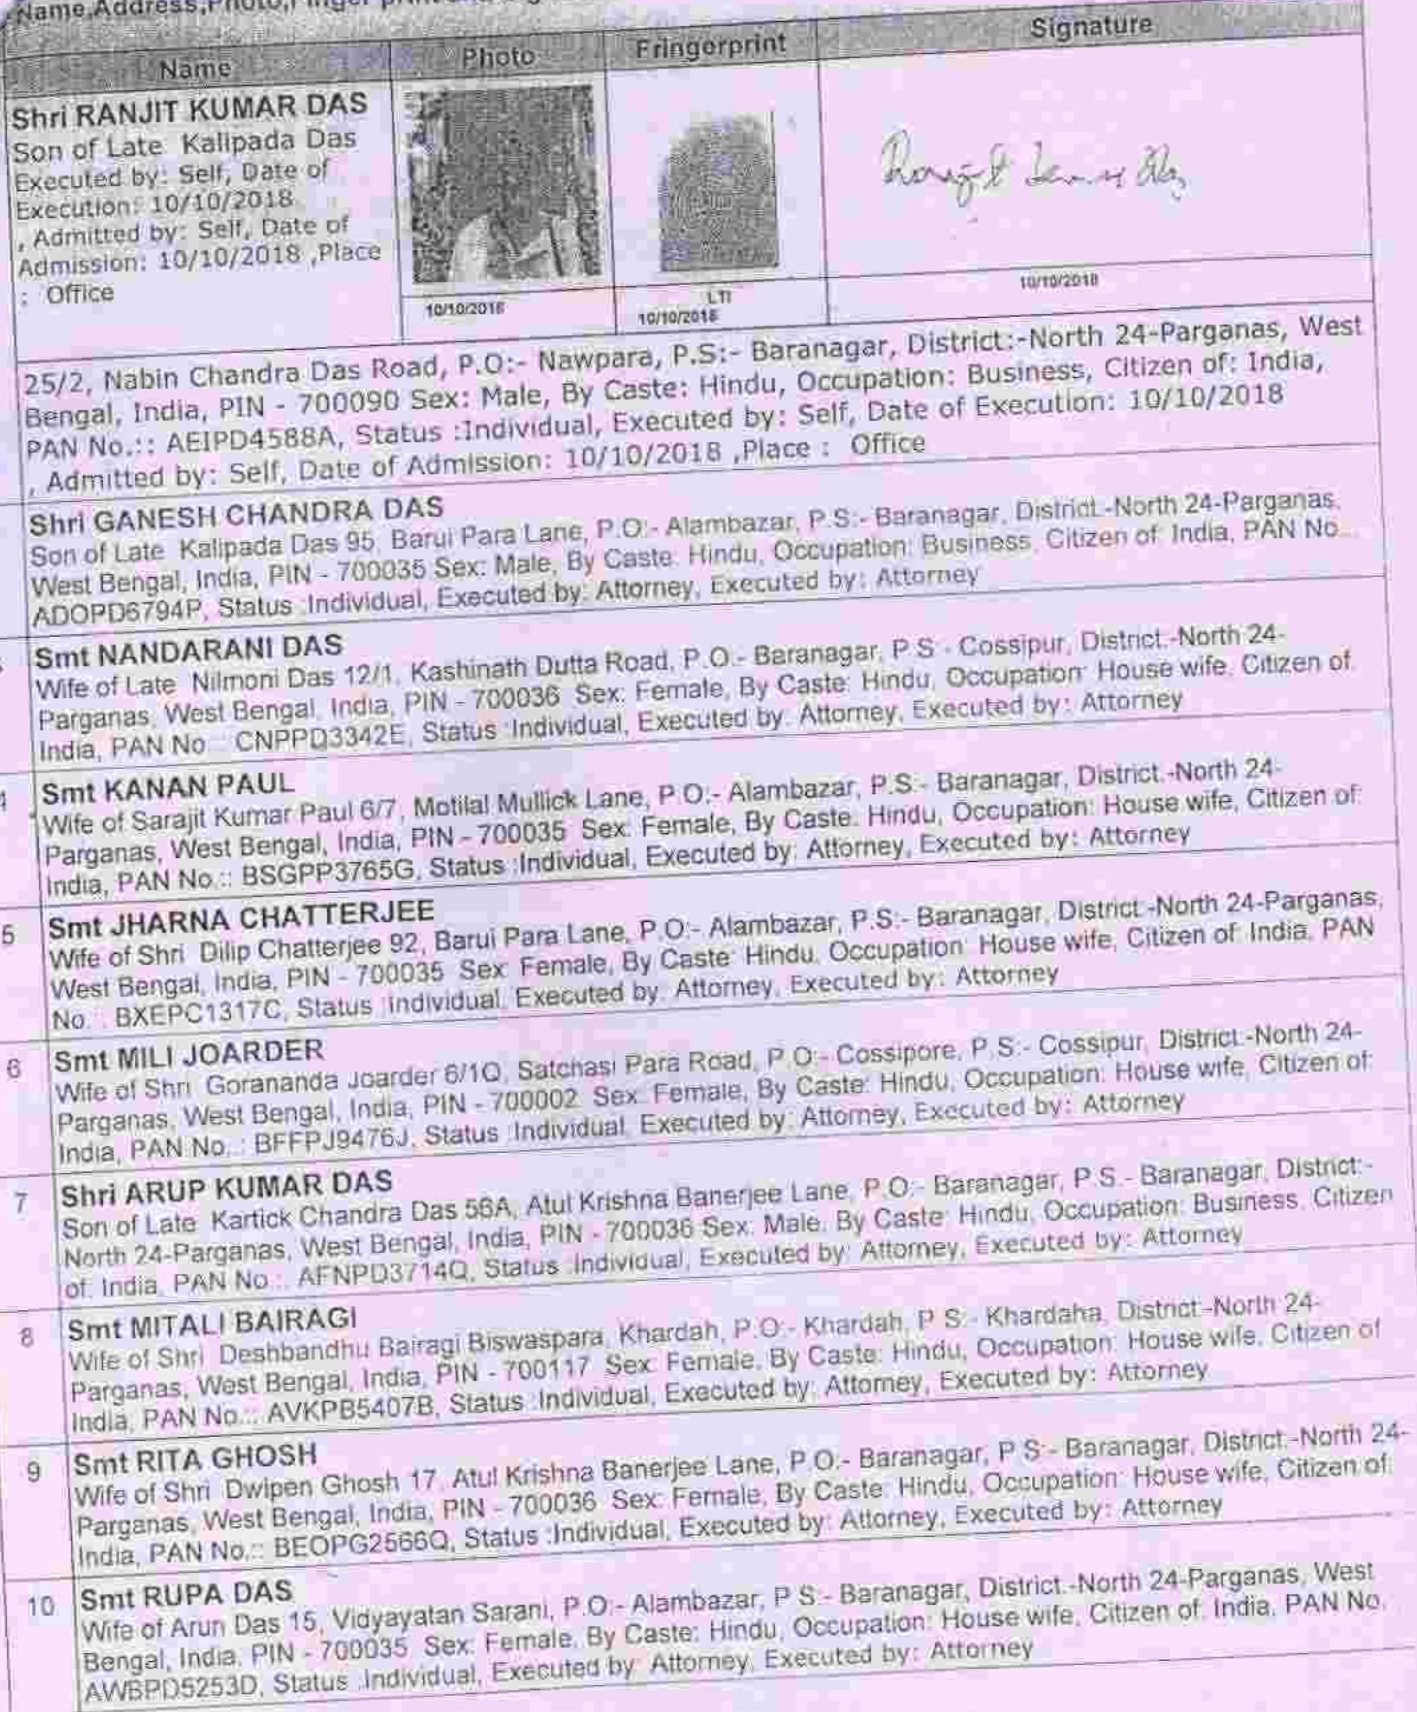 Name,Address,Photo,Finger print
Name
Photo
Fringerprint
Signature
Shri RANJIT KUMAR DAS
Son of Late Kalipada Das
Executed by: Self, Date of
Execution: 10/10/2018
, Admitted by: Self, Date of
Admission: 10/10/2018 ,Place
: Office
10/10/2018
LTI
10/10/2018
10/10/2018
25/2, Nabin Chandra Das Road, P.O:- Nawpara, P.S:- Baranagar, District:-North 24-Parganas, West
Bengal, India, PIN - 700090 Sex: Male, By Caste: Hindu, Occupation: Business, Citizen of: India,
PAN No.:: AEIPD4588A, Status :Individual, Executed by: Self, Date of Execution: 10/10/2018
, Admitted by: Self, Date of Admission: 10/10/2018 ,Place : Office
Shri GANESH CHANDRA DAS
Son of Late Kalipada Das 95, Barui Para Lane, P.O:- Alambazar, P.S:- Baranagar, District:-North 24-Parganas,
West Bengal, India, PIN - 700035 Sex: Male, By Caste: Hindu, Occupation: Business, Citizen of: India, PAN No.::
ADOPD6794P, Status :Individual, Executed by: Attorney, Executed by: Attorney
Smt NANDARANI DAS
Wife of Late Nilmoni Das 12/1, Kashinath Dutta Road, P.O:- Baranagar, P.S:- Cossipur, District:-North 24-
Parganas, West Bengal, India, PIN - 700036 Sex: Female, By Caste: Hindu, Occupation: House wife, Citizen of:
India, PAN No.:: CNPPD3342E, Status :Individual, Executed by: Attorney, Executed by: Attorney
4 Smt KANAN PAUL
Wife of Sarajit Kumar Paul 6/7, Motilal Mullick Lane, P.O:- Alambazar, P.S:- Baranagar, District:-North 24-
Parganas, West Bengal, India, PIN - 700035 Sex: Female, By Caste: Hindu, Occupation: House wife, Citizen of:
India, PAN No.:: BSGPP3765G, Status :Individual, Executed by: Attorney, Executed by: Attorney
5 Smt JHARNA CHATTERJEE
Wife of Shri Dilip Chatterjee 92, Barui Para Lane, P.O:- Alambazar, P.S:- Baranagar, District:-North 24-Parganas,
West Bengal, India, PIN - 700035 Sex: Female, By Caste: Hindu, Occupation: House wife, Citizen of: India, PAN
No.:: BXEPC1317C, Status :Individual, Executed by: Attorney, Executed by: Attorney
6 Smt MILI JOARDER
Wife of Shri Gorananda Joarder 6/1Q, Satchasi Para Road, P.O:- Cossipore, P.S:- Cossipur, District:-North 24-
Parganas, West Bengal, India, PIN - 700002 Sex: Female, By Caste: Hindu, Occupation: House wife, Citizen of:
India, PAN No.:: BFFPJ9476J, Status :Individual, Executed by: Attorney, Executed by: Attorney
7 Shri ARUP KUMAR DAS
Son of Late Kartick Chandra Das 56A, Atul Krishna Banerjee Lane, P.O:- Baranagar, P.S:- Baranagar, District:-
North 24-Parganas, West Bengal, India, PIN - 700036 Sex: Male, By Caste: Hindu, Occupation: Business, Citizen
of: India, PAN No.:: AFNPD3714Q, Status :Individual, Executed by: Attorney, Executed by: Attorney
8 Smt MITALI BAIRAGI
Wife of Shri Deshbandhu Bairagi Biswaspara, Khardah, P.O:- Khardah, P.S:- Khardaha, District:-North 24-
Parganas, West Bengal, India, PIN - 700117 Sex: Female, By Caste: Hindu, Occupation: House wife, Citizen of:
India, PAN No.:: AVKPB5407B, Status :Individual, Executed by: Attorney, Executed by: Attorney
9 Smt RITA GHOSH
Wife of Shri Dwipen Ghosh 17, Atul Krishna Banerjee Lane, P.O:- Baranagar, P.S:- Baranagar, District:-North 24-
Parganas, West Bengal, India, PIN - 700036 Sex: Female, By Caste: Hindu, Occupation: House wife, Citizen of:
India, PAN No.:: BEOPG2566Q, Status :Individual, Executed by: Attorney, Executed by: Attorney
10 Smt RUPA DAS
Wife of Arun Das 15, Vidyayatan Sarani, P.O:- Alambazar, P.S:- Baranagar, District:-North 24-Parganas, West
Bengal, India, PIN - 700035 Sex: Female, By Caste: Hindu, Occupation: House wife, Citizen of: India, PAN No.
AWBPD5253D, Status :Individual, Executed by: Attorney, Executed by: Attorney